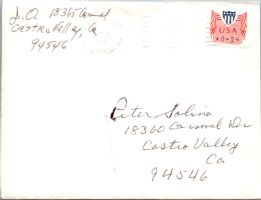 J.O. 18365 Carmel
Castro Valley, Ca
94546
USA
Peter Solino
18360 Carmel Dr
Castro Valley
Ca
94546